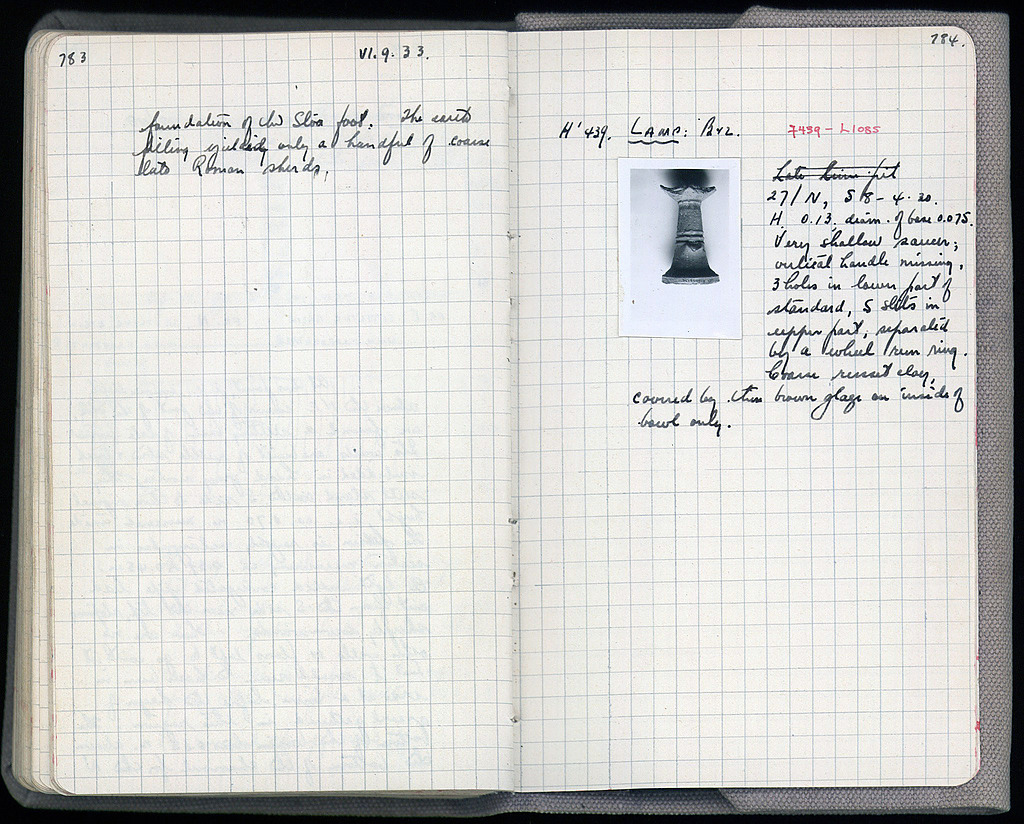 783
VI. 9. 33.
foundation of the Stoa foot. The earth
filling yielded only a handful of coarse
late Roman sherds.
784.
H' 439. LAMP: BYZ.
7439 - L1085
27/N, S 8 - 4. 30.
H. 0.13. diam. of base 0.075.
Very shallow saucer;
vertical handle missing.
3 holes in lower part of
standard, 5 slits in
upper part, separated
by a wheel run ring.
Coarse russet clay,
covered by thin brown glaze on inside of
bowl only.